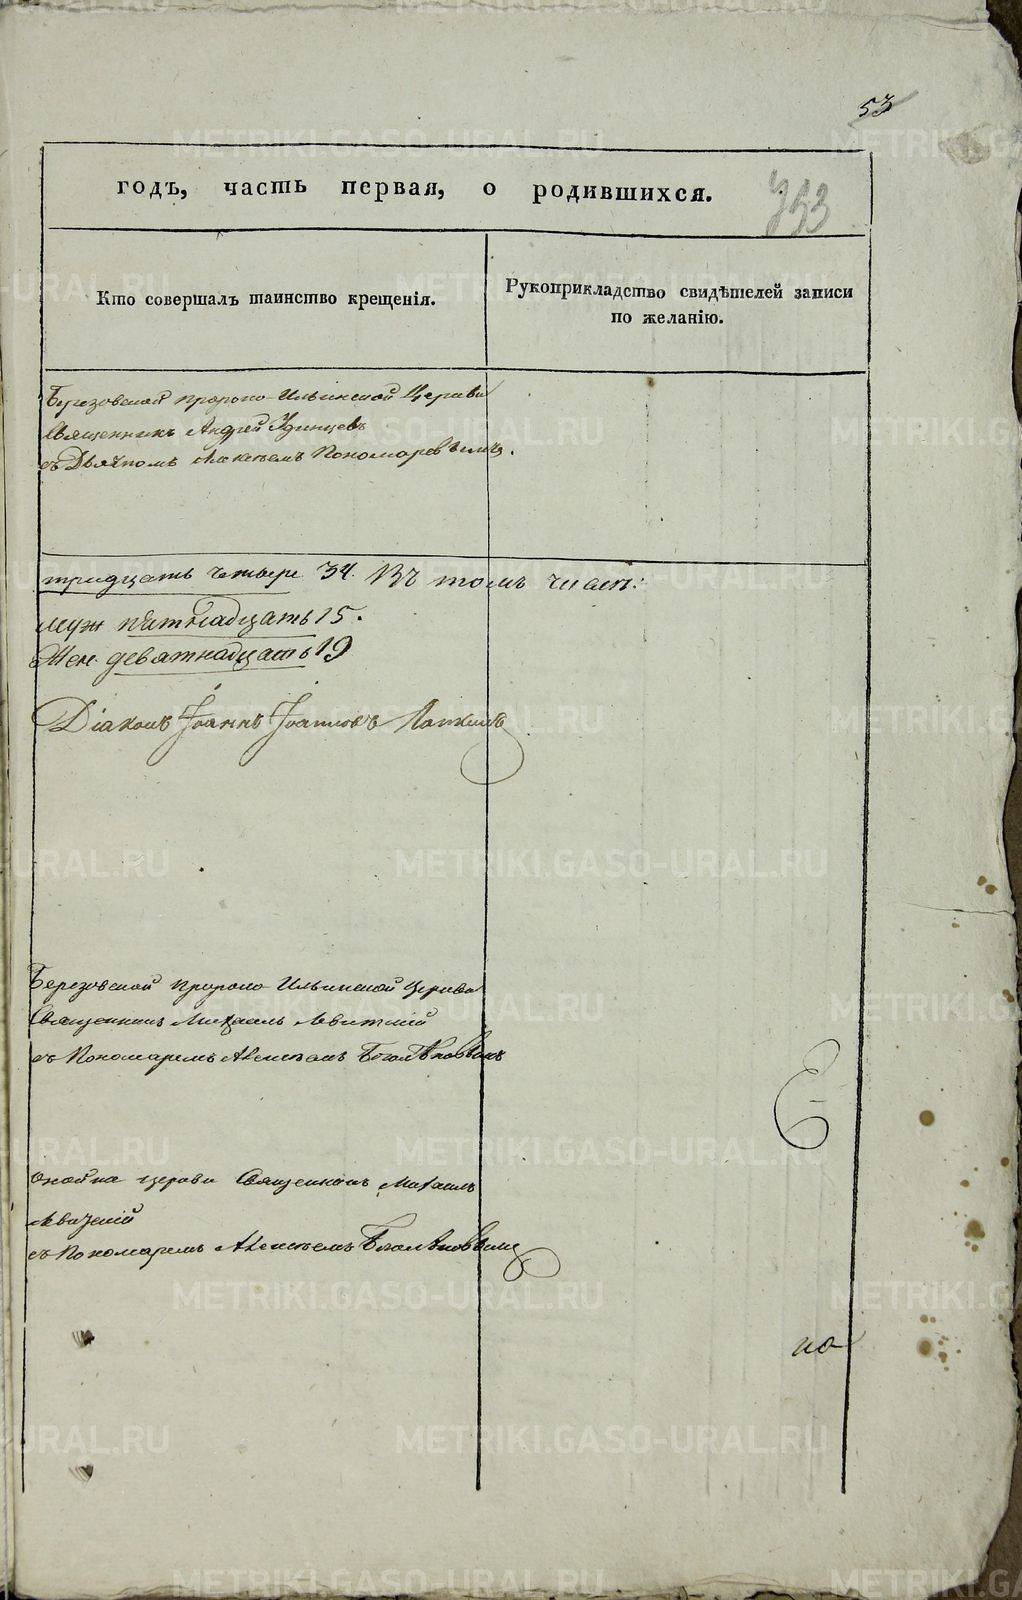 53
годъ, часть первая, о родившихся.
353
Кто совершалъ таинство крещенія.
Рукоприкладство свидѣтелей записи
по желанію.
Березовской пророко-Ильинской Церкви
Священникъ Андрей Удинцевъ
съ Дьячкомъ Пономаревымъ.
тридцать четыре 34. Въ томъ числѣ:
муж пятнадцать 15.
Жен. девятнадцать 19
Діаконъ Іоаннъ Іоанновъ
Березовской пророко Ильинской Церкви
Священникъ Михаилъ Левитскій
съ Пономаремъ Алексѣемъ
церкви Священникъ Михаилъ
съ Пономаремъ Алексѣемъ
по
METRIKI.GASO-URAL.RU